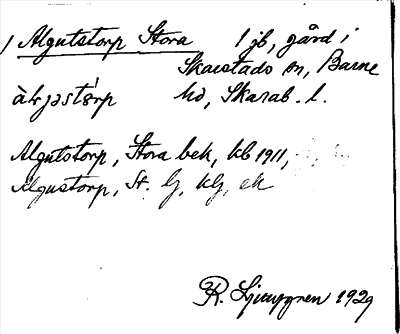 1 Algutstorp Stora 1 jb, gård i
Skarstads sn, Barne
àlgɔstɔrp hd, Skarab. l.
Algutstorp, Stora bek, kb 1911,
Algustorp, St. lj, klj, ek
R. Ljunggren 1929